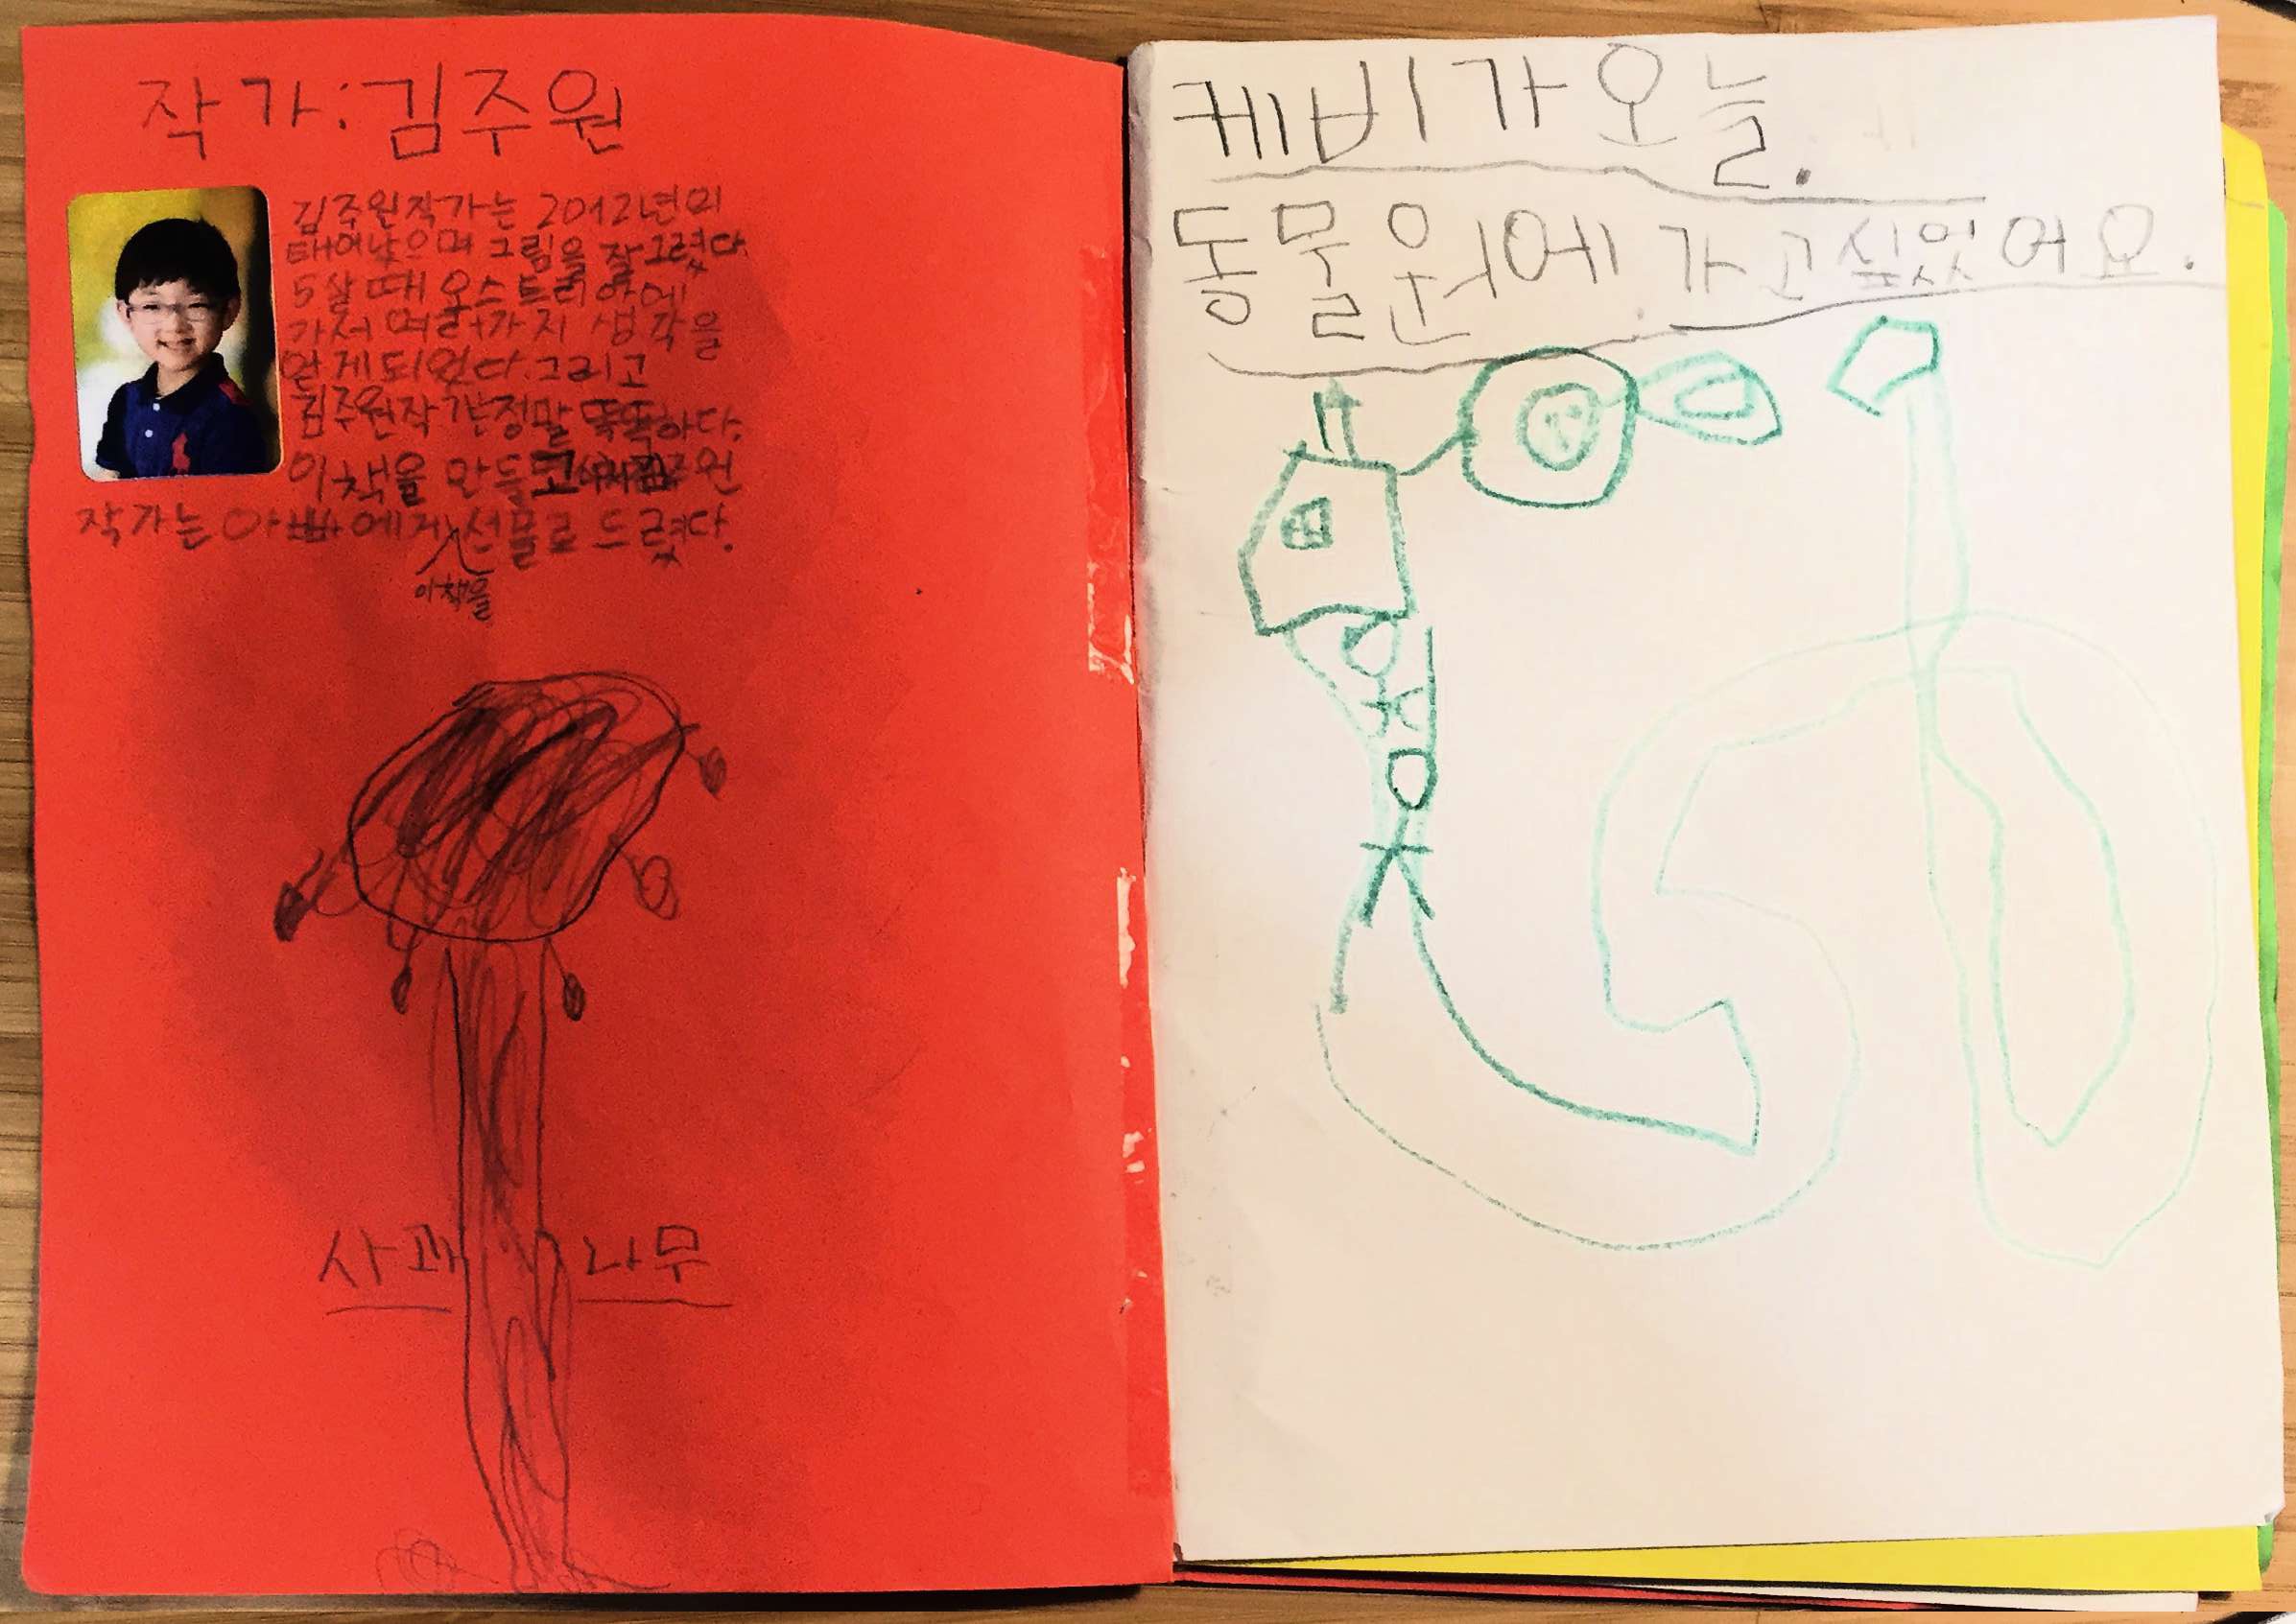 작가:김주원
김주원작가는 2012년에
태어났으며 그림을 잘 그렸다.
5살때 오스트리아에
가서 여러가지 생각을
얻게되었다.그리고
김주원작가는정말 똑똑하다.
이책을 만들고 김주원
작가는 아빠에게 선물로 드렸다.
이책을
사과나무
케비가오늘.
동물원에 가고싶었어요.